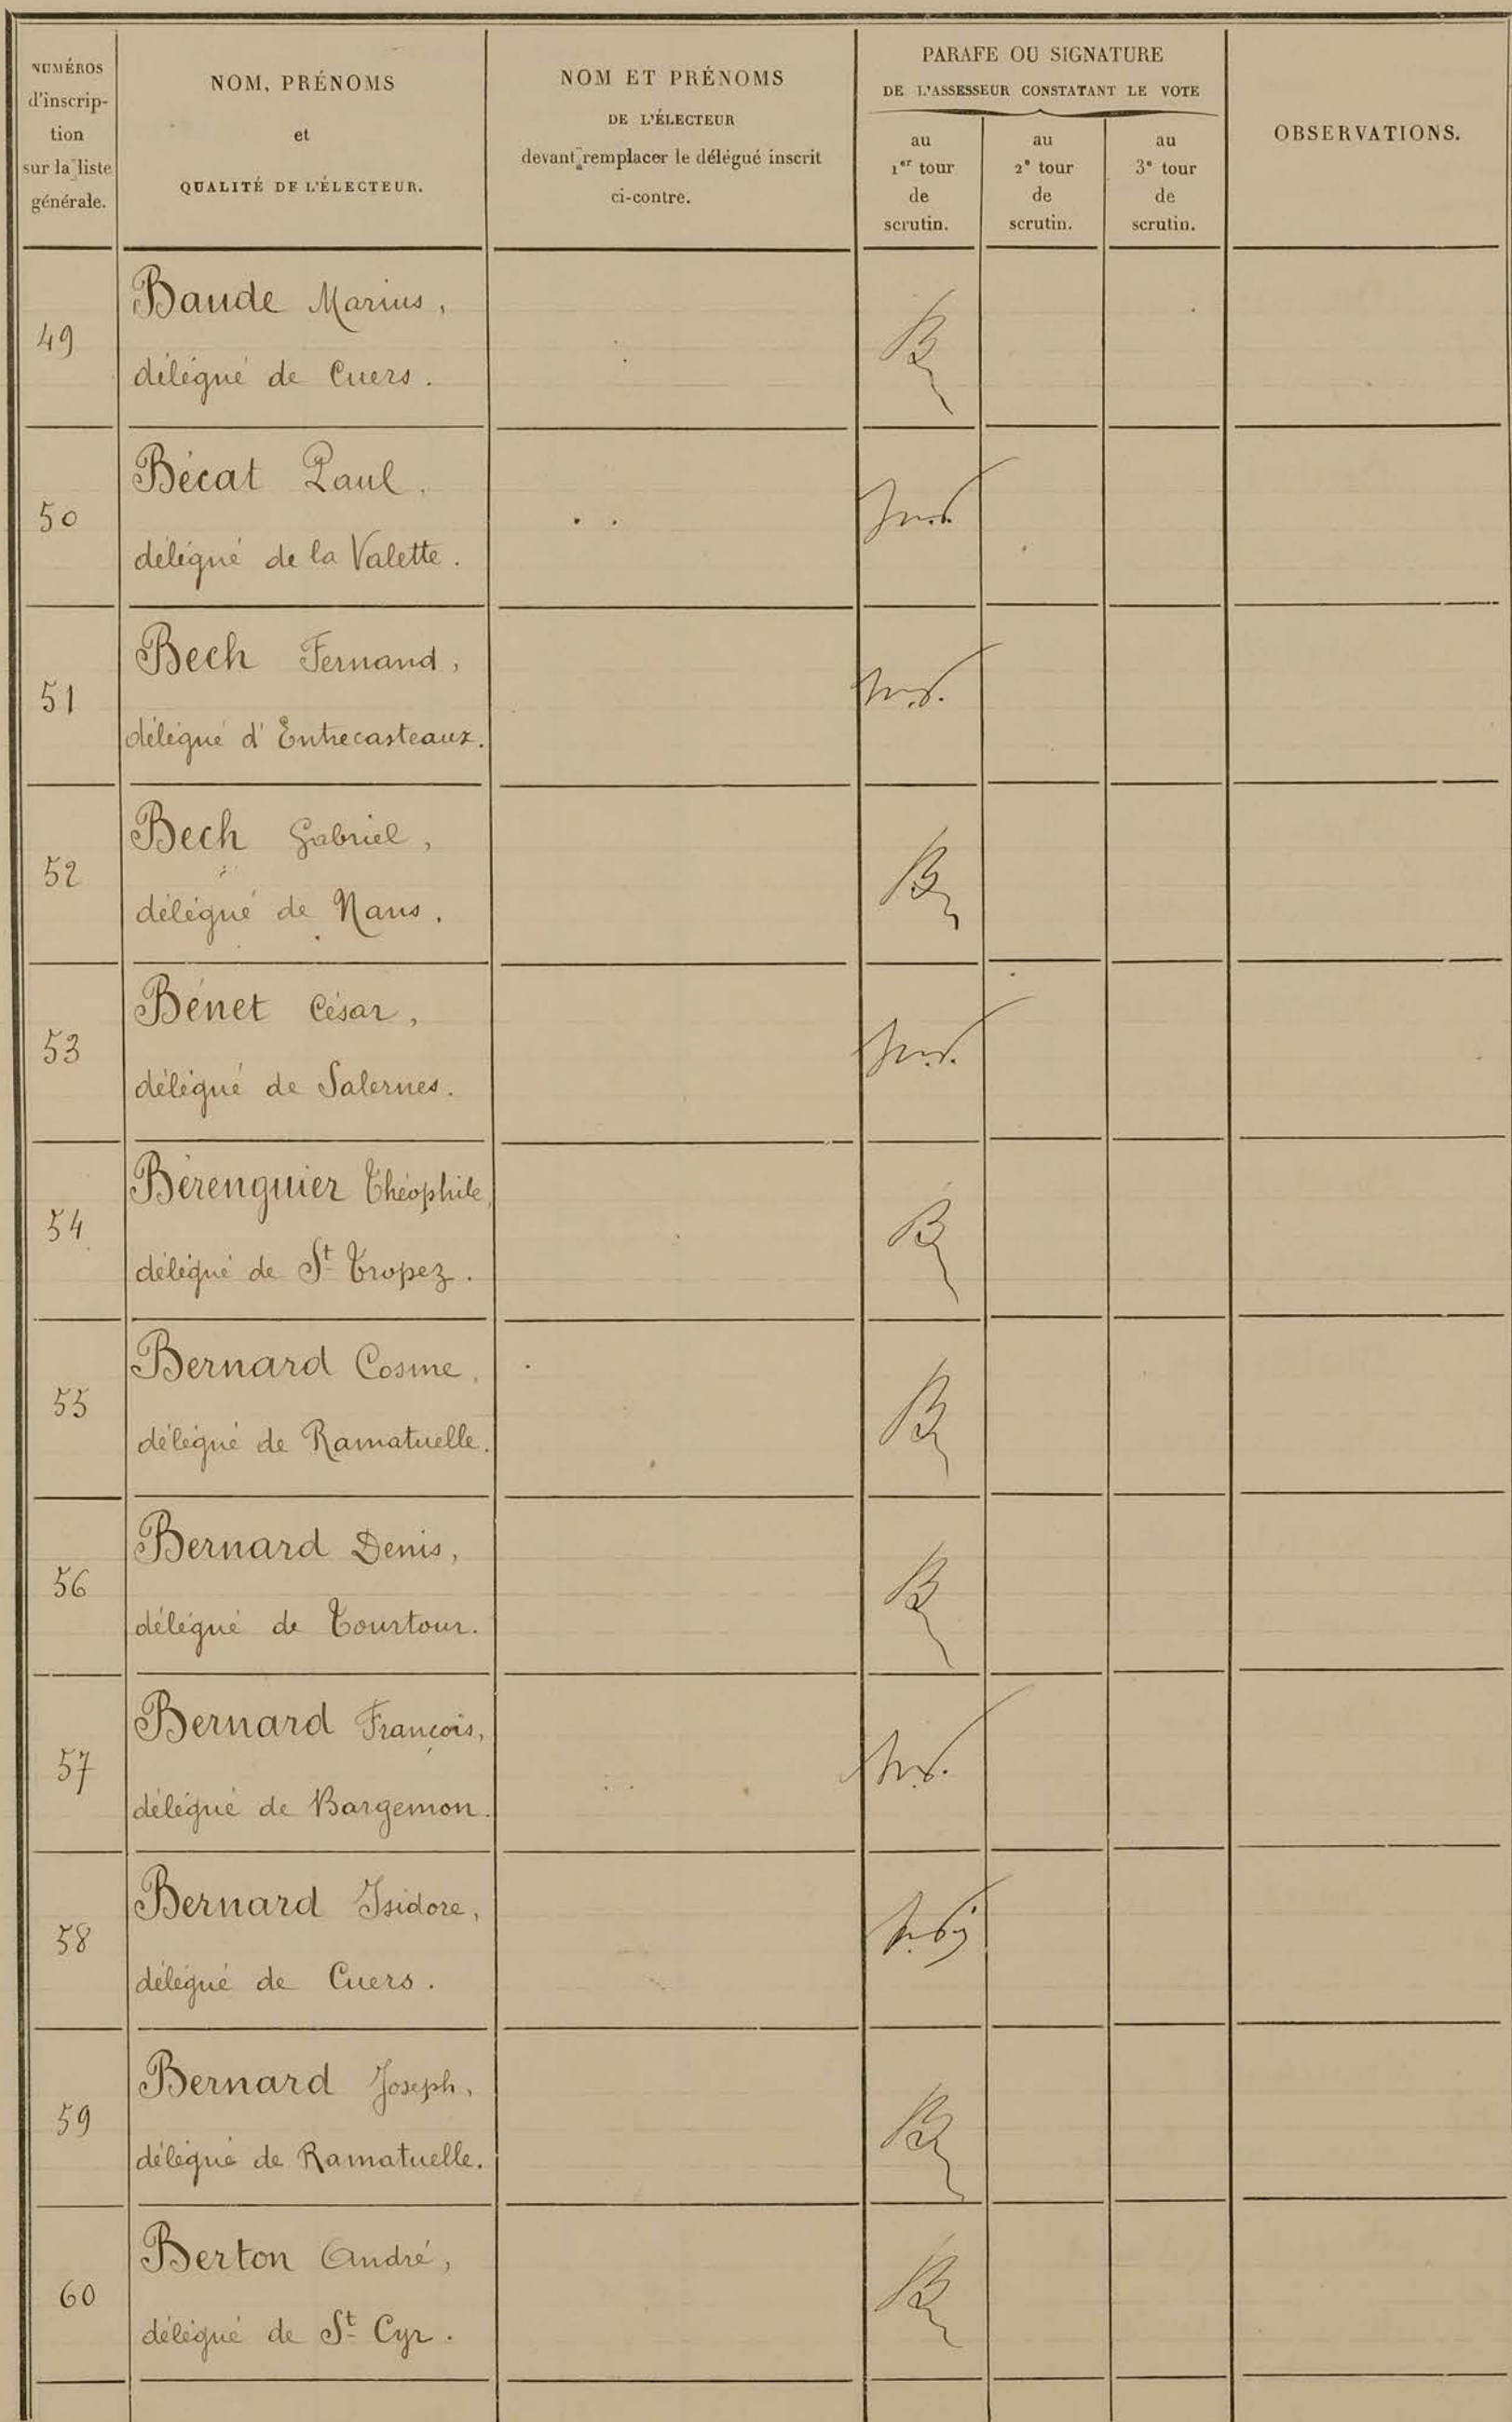 NUMÉROS
d'inscrip-
tion
sur la liste
générale.
NOM, PRÉNOMS
et
QUALITÉ DE L'ÉLECTEUR.
NOM ET PRÉNOMS
DE L'ÉLECTEUR
devant remplacer le délégué inscrit
ci-contre.
PARAFE OU SIGNATURE
DE L'ASSESSEUR CONSTATANT LE VOTE
au
1er tour
de
scrutin.
au
2e tour
de
scrutin.
au
3e tour
de
scrutin.
OBSERVATIONS.
49
Baude Marius,
délégué de Cuers.
50
Bécat Paul,
délégué de la Valette.
51
Bech Fernand,
délégué d'Entrecasteaux.
52
Bech Gabriel,
délégué de Nans.
53
Bénet César,
délégué de Salernes.
54
Bérenguier Théophile,
délégué de St Tropez.
55
Bernard Cosme,
délégué de Ramatuelle.
56
Bernard Denis,
délégué de Tourtour.
57
Bernard François,
délégué de Bargemon.
58
Bernard Isidore,
délégué de Cuers.
59
Bernard Joseph,
délégué de Ramatuelle.
60
Berton André,
délégué de St Cyr.